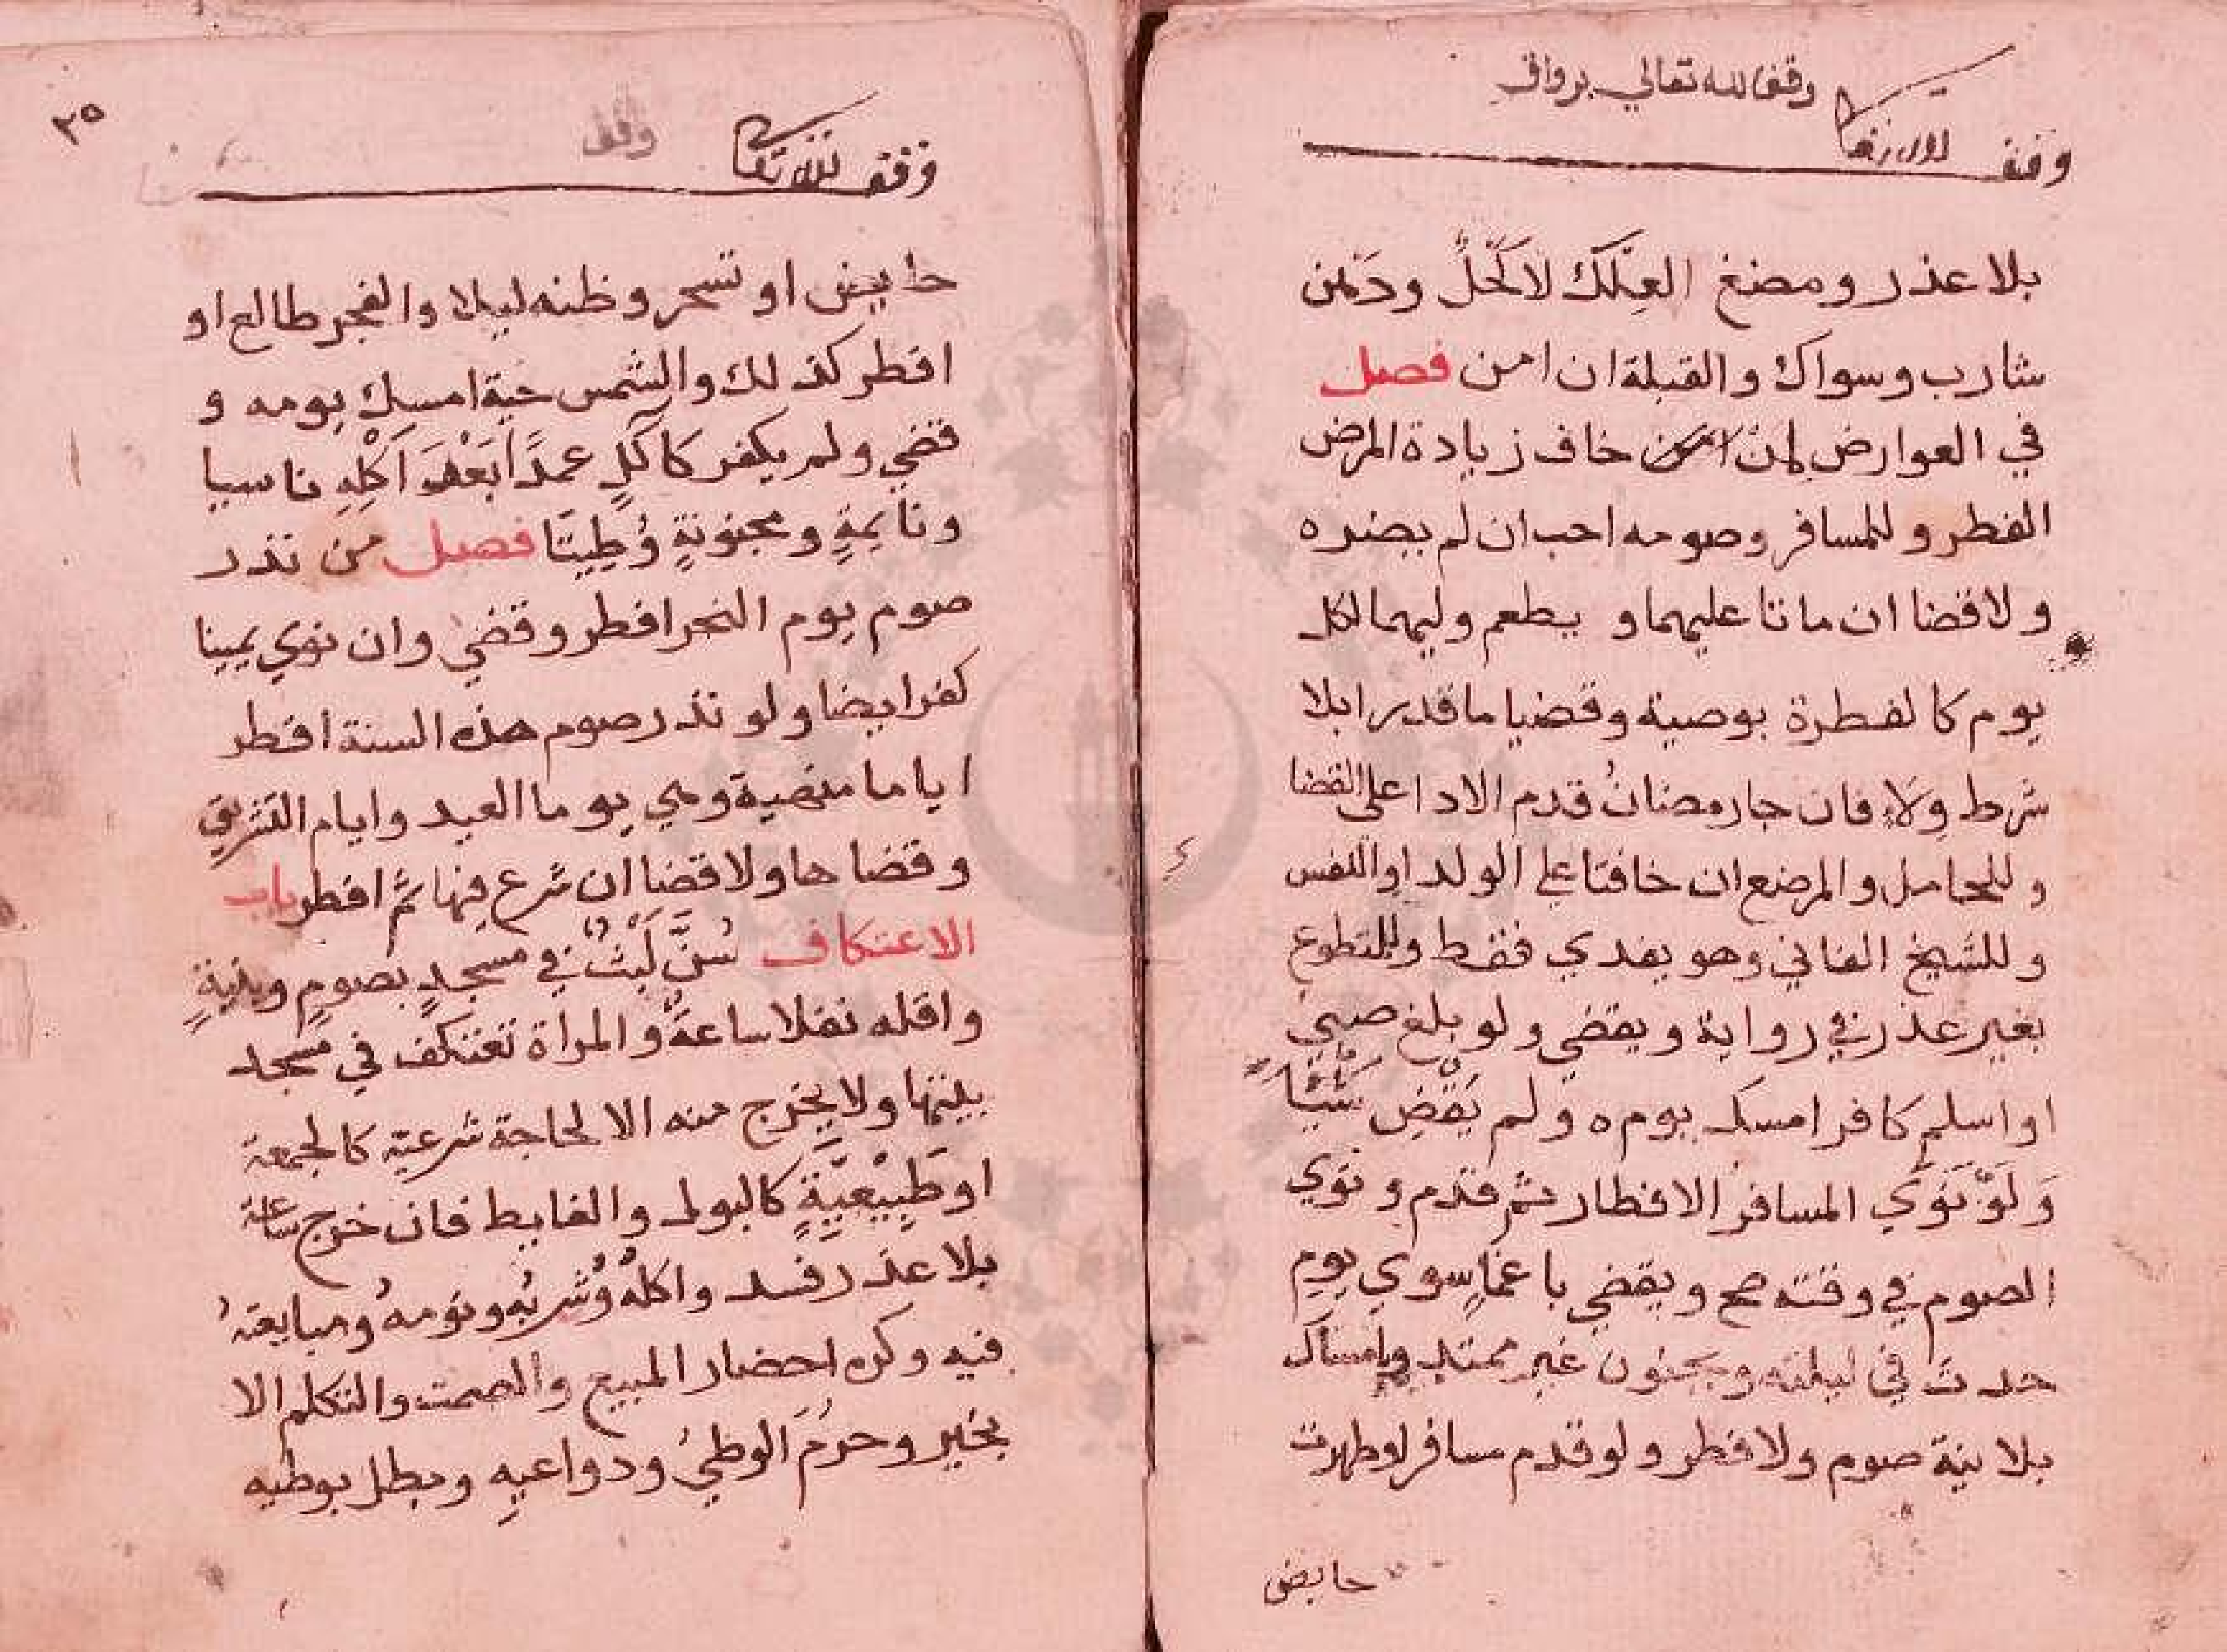 وقف لله تعالي برواق
وقف لله تعالى
بلا عذر ومضغ العِلك لا كُحْلٌ ودَهن
شارب وسواك والقبلة ان امن فصل
في العوارض لمن خاف زيادة المرض
الفطر وللمسافر وصومه احب ان لم يضره
ولا قضا ان ماتا عليهما و يطعم وليهما لكل
يوم كالفطرة بوصية وقضيا ما قدرا بلا
شرط وِلاءٍ فان جا رمضانُ قدم الادا على القضا
وللحامل والمرضع ان خافتا علي الولد او النفس
وللشيخ الفاني وهو يفدي فقط وللمتطوع
بغير عذر في رواية ويقضي ولو بلغ صبي
او اسلم كافر امسك يومه ولم يَقْضِ شَيْئًا
وَلَوْ نَوَي المسافر الافطار ثم قدم ونوي
الصوم في وقته صح ويقضي باغماٍ سوي يوم
حدث في ليلته وبجنون غير ممتد وبامساك
بلا نية صوم ولا فطر ولو قدم مسافر او طهرت
حايض
٣٥
وقف
وقف لله تعالى
حايض او تسحر وظنه ليلا والفجر طالع او
افطر كذلك والشمس حية امسك يومه و
قضي ولم يكفر كاَكْلٍ عمدًا بَعْدَ اَكْلِهِ ناسيا
ونايمةٍ ومجنونةٍ وُطِيَتَا فصل من نذر
صوم يوم النحر افطر وقضي وان نوي يمينا
كفر ايضا ولو نذر صوم هذه السنة افطر
اياما منهية وهي يوما العيد وايام التشريق
وقضاها ولا قضا ان شرع فيها ثمَّ افطر باب
الاعتكاف سُنَّ لَبْثٌ في مسجدٍ بصومٍ وبنيةٍ
واقله نفلا ساعةٌ والمراة تعتكف في مسجد
بيتها ولا يخرج منه الا لحاجة شرعية كالجمعة
او طَبِيْعِيَّةٍ كالبول والغايط فان خرج ساعة
بلا عذر فسد واكلُهُ وُشُربُه ونومهُ ومبايعتهُ
فيه وكره احضار المبيع والصمت والتكلم الا
بخير وحرُمَ الوطيُ ودواعيهِ وبطل بوطيه